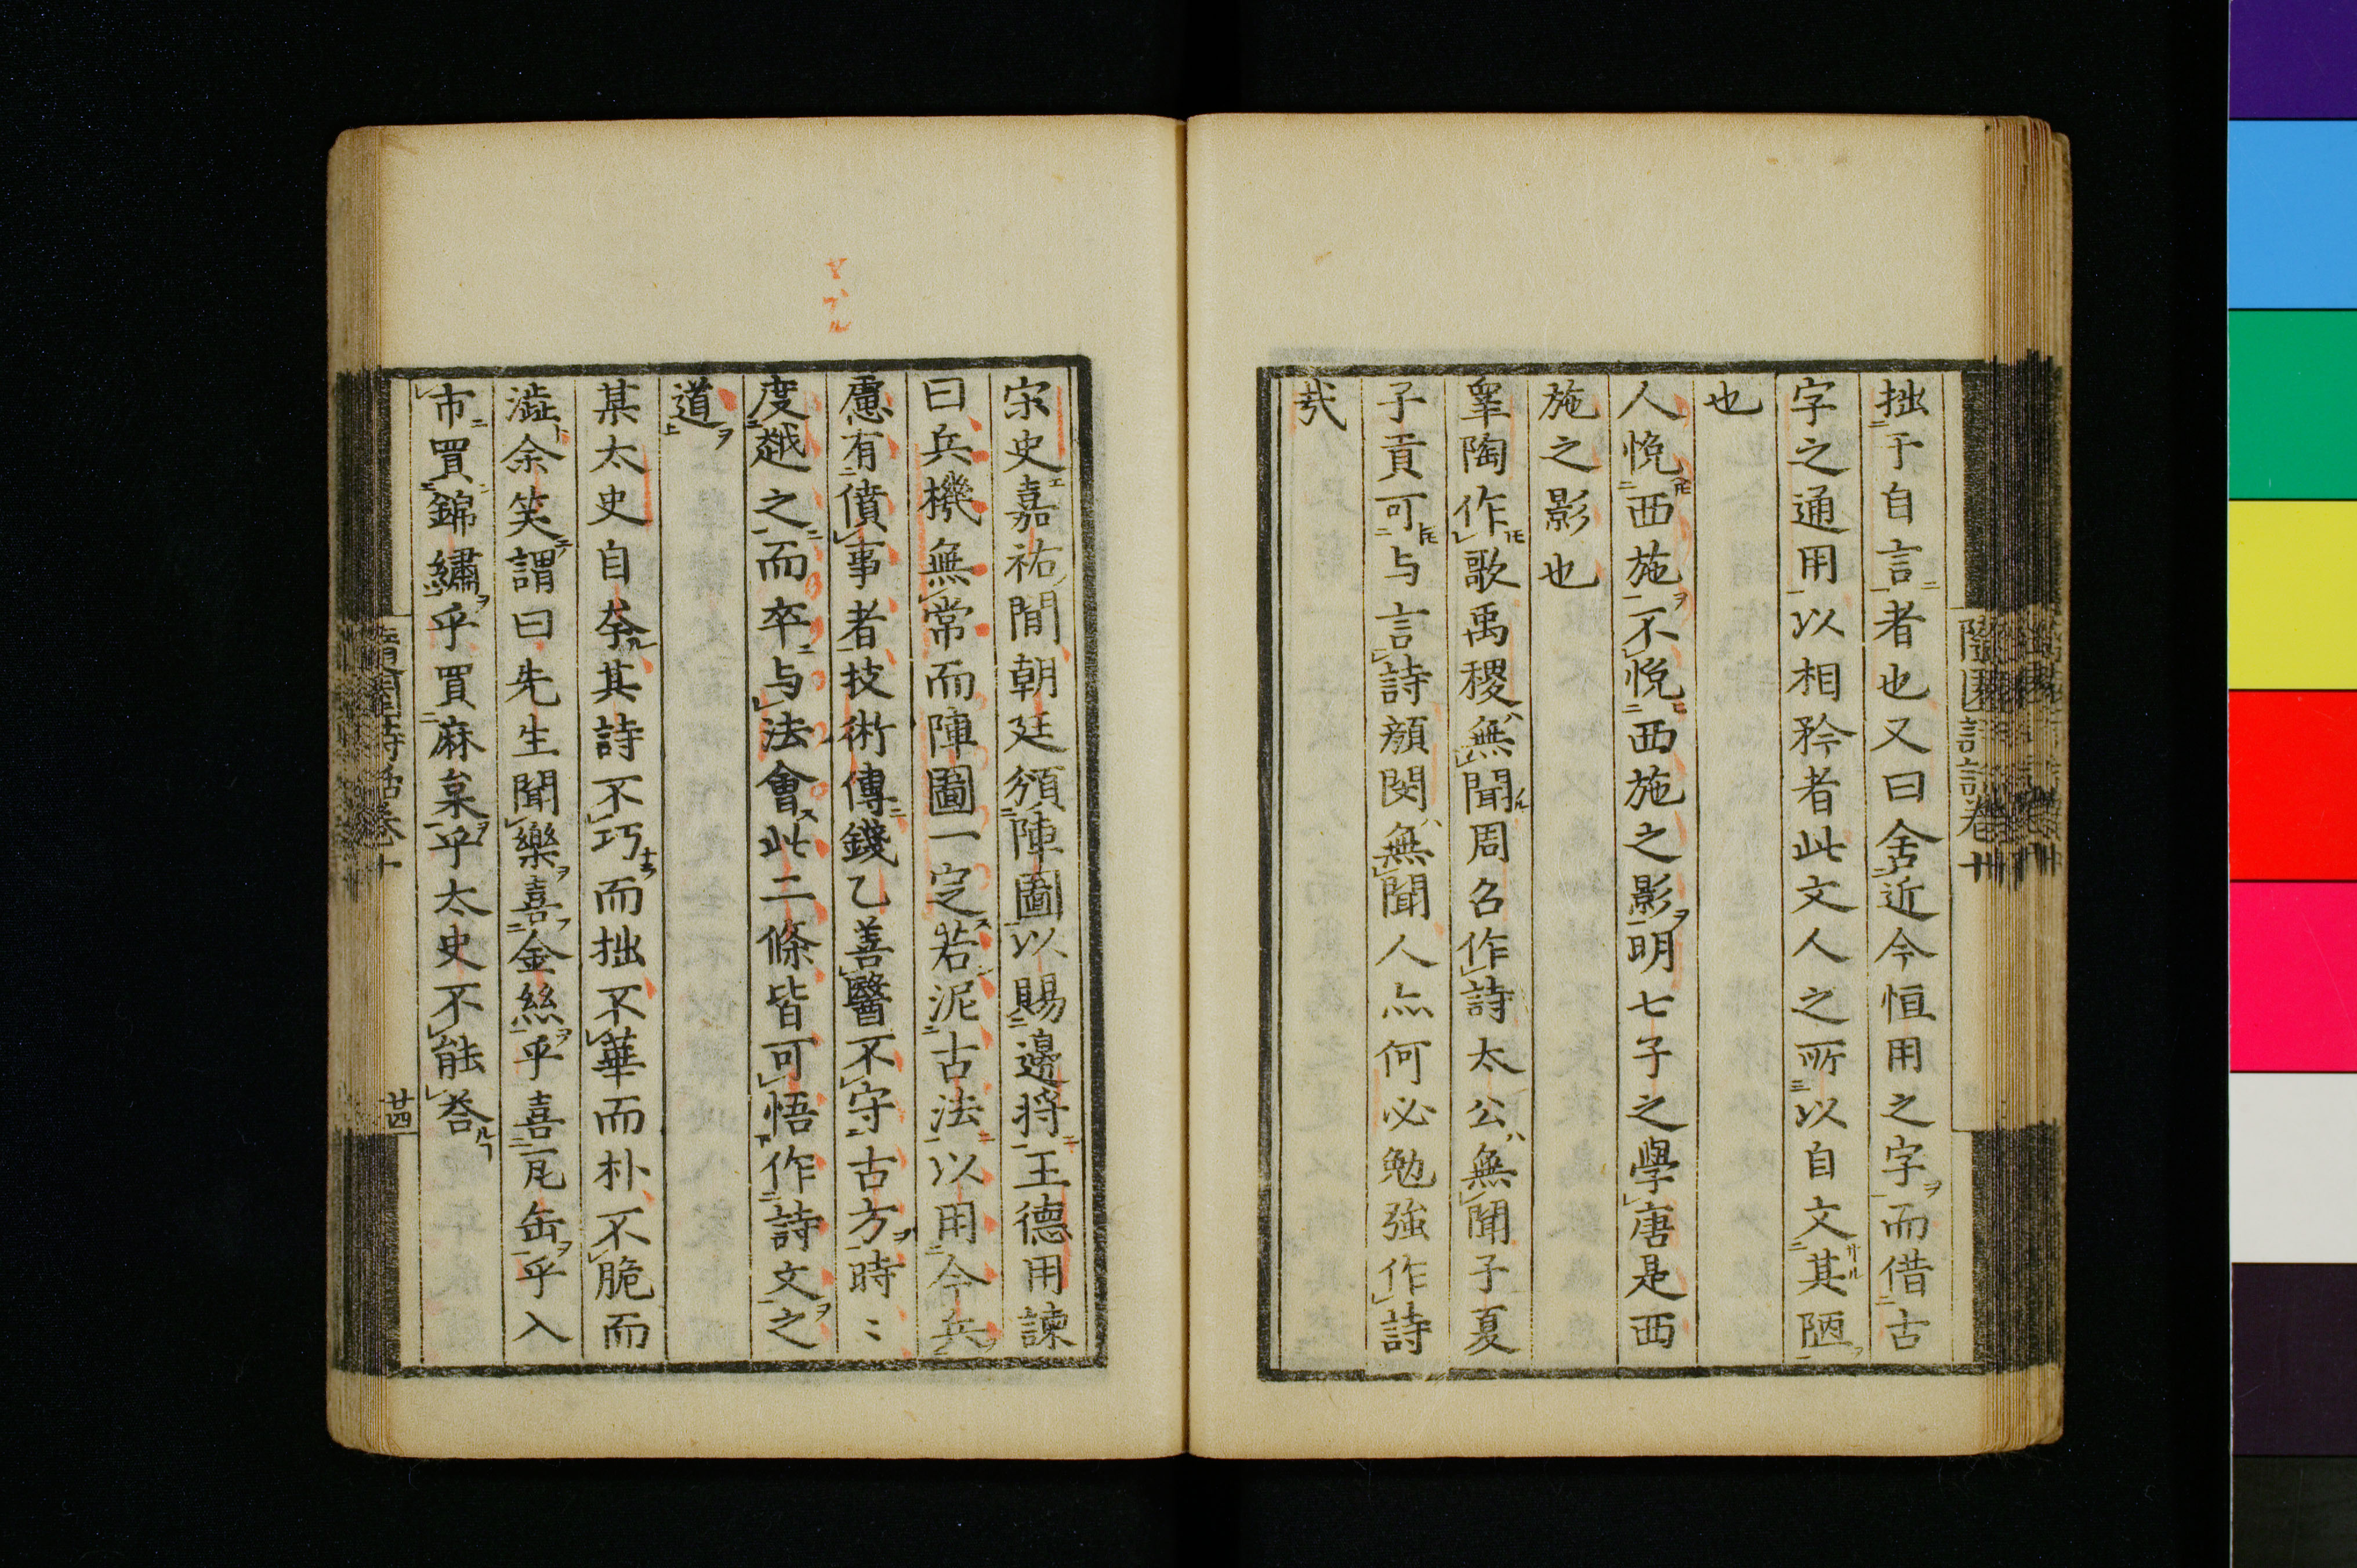 拙于自言者也又曰舍近今恒用之字而借古
字之通用以相矜者此文人之所以自文其陋
也
人悅西施不悅西施之影明七子之學唐是西
施之影也
皐陶作歌禹稷無聞周召作詩太公無聞子夏
子貢可与言詩顏閔無聞人亦何必勉強作詩
哉
宋史嘉祐間朝廷頒陣圖以賜邊將王德用諫
曰兵機無常而陣圖一定若泥古法以用今兵
慮有僨事者技術傳錢乙善醫不守古方時〻
度越之而卒与法會此二條皆可悟作詩文之
道
某太史自夸其詩不巧而拙不華而朴不脆而
澁余笑謂曰先生聞樂喜金絲乎喜瓦缶乎入
市買錦繡乎買麻枲乎太史不能荅
廿四